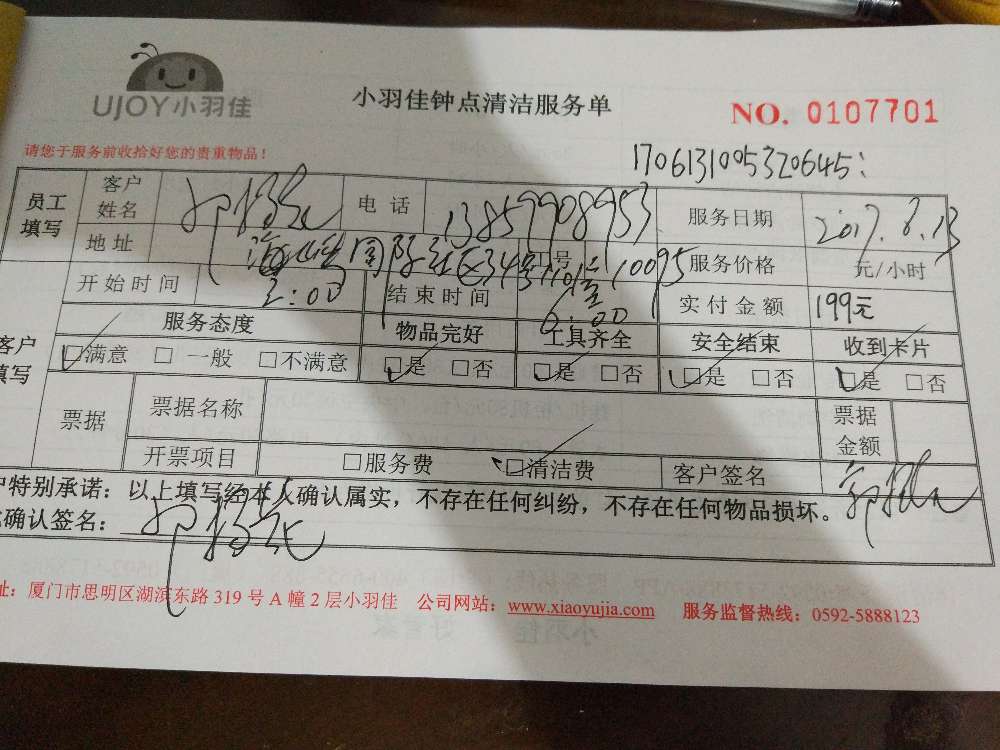 UJOY小羽佳
小羽佳钟点清洁服务单
NO. 0107701
请您于服务前收拾好您的贵重物品！
1706131005320645:
员工填写 客户姓名 电话 13859908953 服务日期 2017.6.13
地址 国际社区34号 工号 10095 服务价格 元/小时
开始时间 2:00 结束时间 6:00 实付金额 199元
客户填写 服务态度 物品完好 工具齐全 安全结束 收到卡片
□满意 □一般 □不满意 □是 □否 □是 □否 □是 □否 □是 □否
票据 票据名称 票据金额
开票项目 □服务费 □清洁费 客户签名
户特别承诺：以上填写经本人确认属实，不存在任何纠纷，不存在任何物品损坏。
确认签名：
址：厦门市思明区湖滨东路 319 号 A 幢 2 层小羽佳 公司网站：www.xiaoyujia.com 服务监督热线：0592-5888123